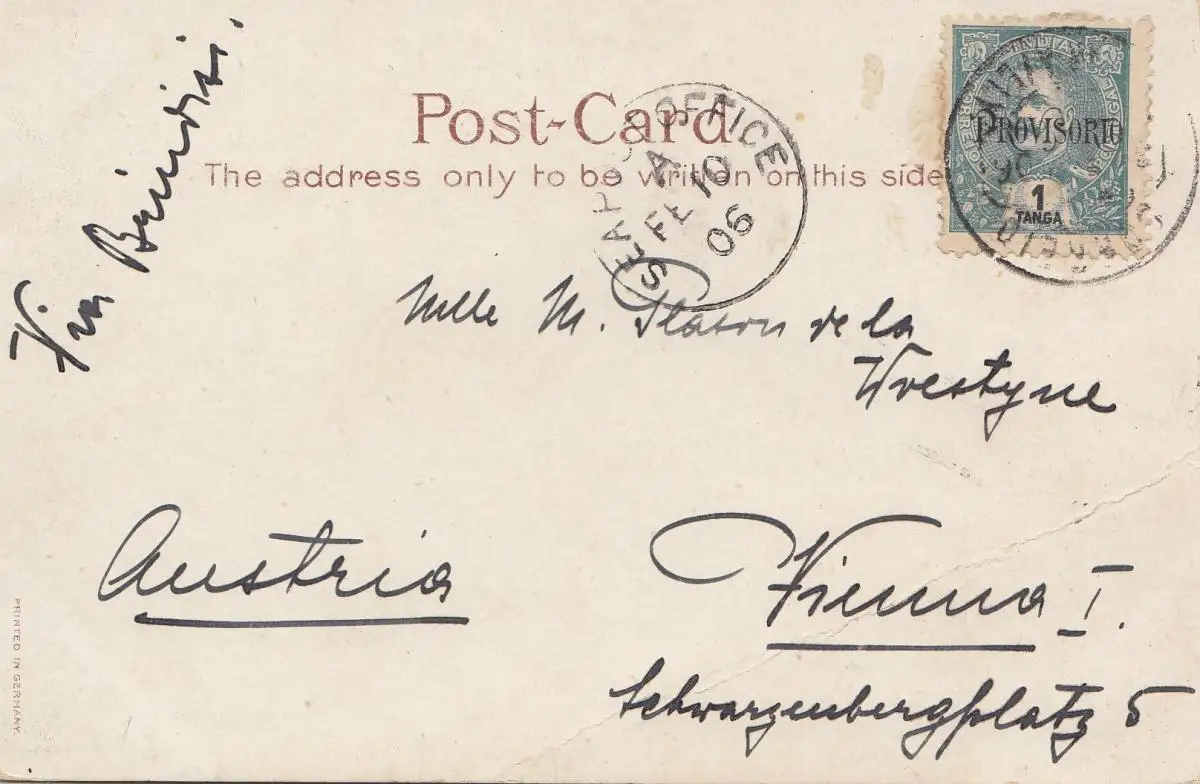 Via Brindisi.
Post-Card
The address only to be written on this side
SEA POST OFFICE
A
FE 10
06
INDIA
PROVISORIO
1
TANGA
CORREIO
Mlle M. Plason de la
Woestyne
Austria
Vienna I.
Schwarzenbergplatz 5
PRINTED IN GERMANY.